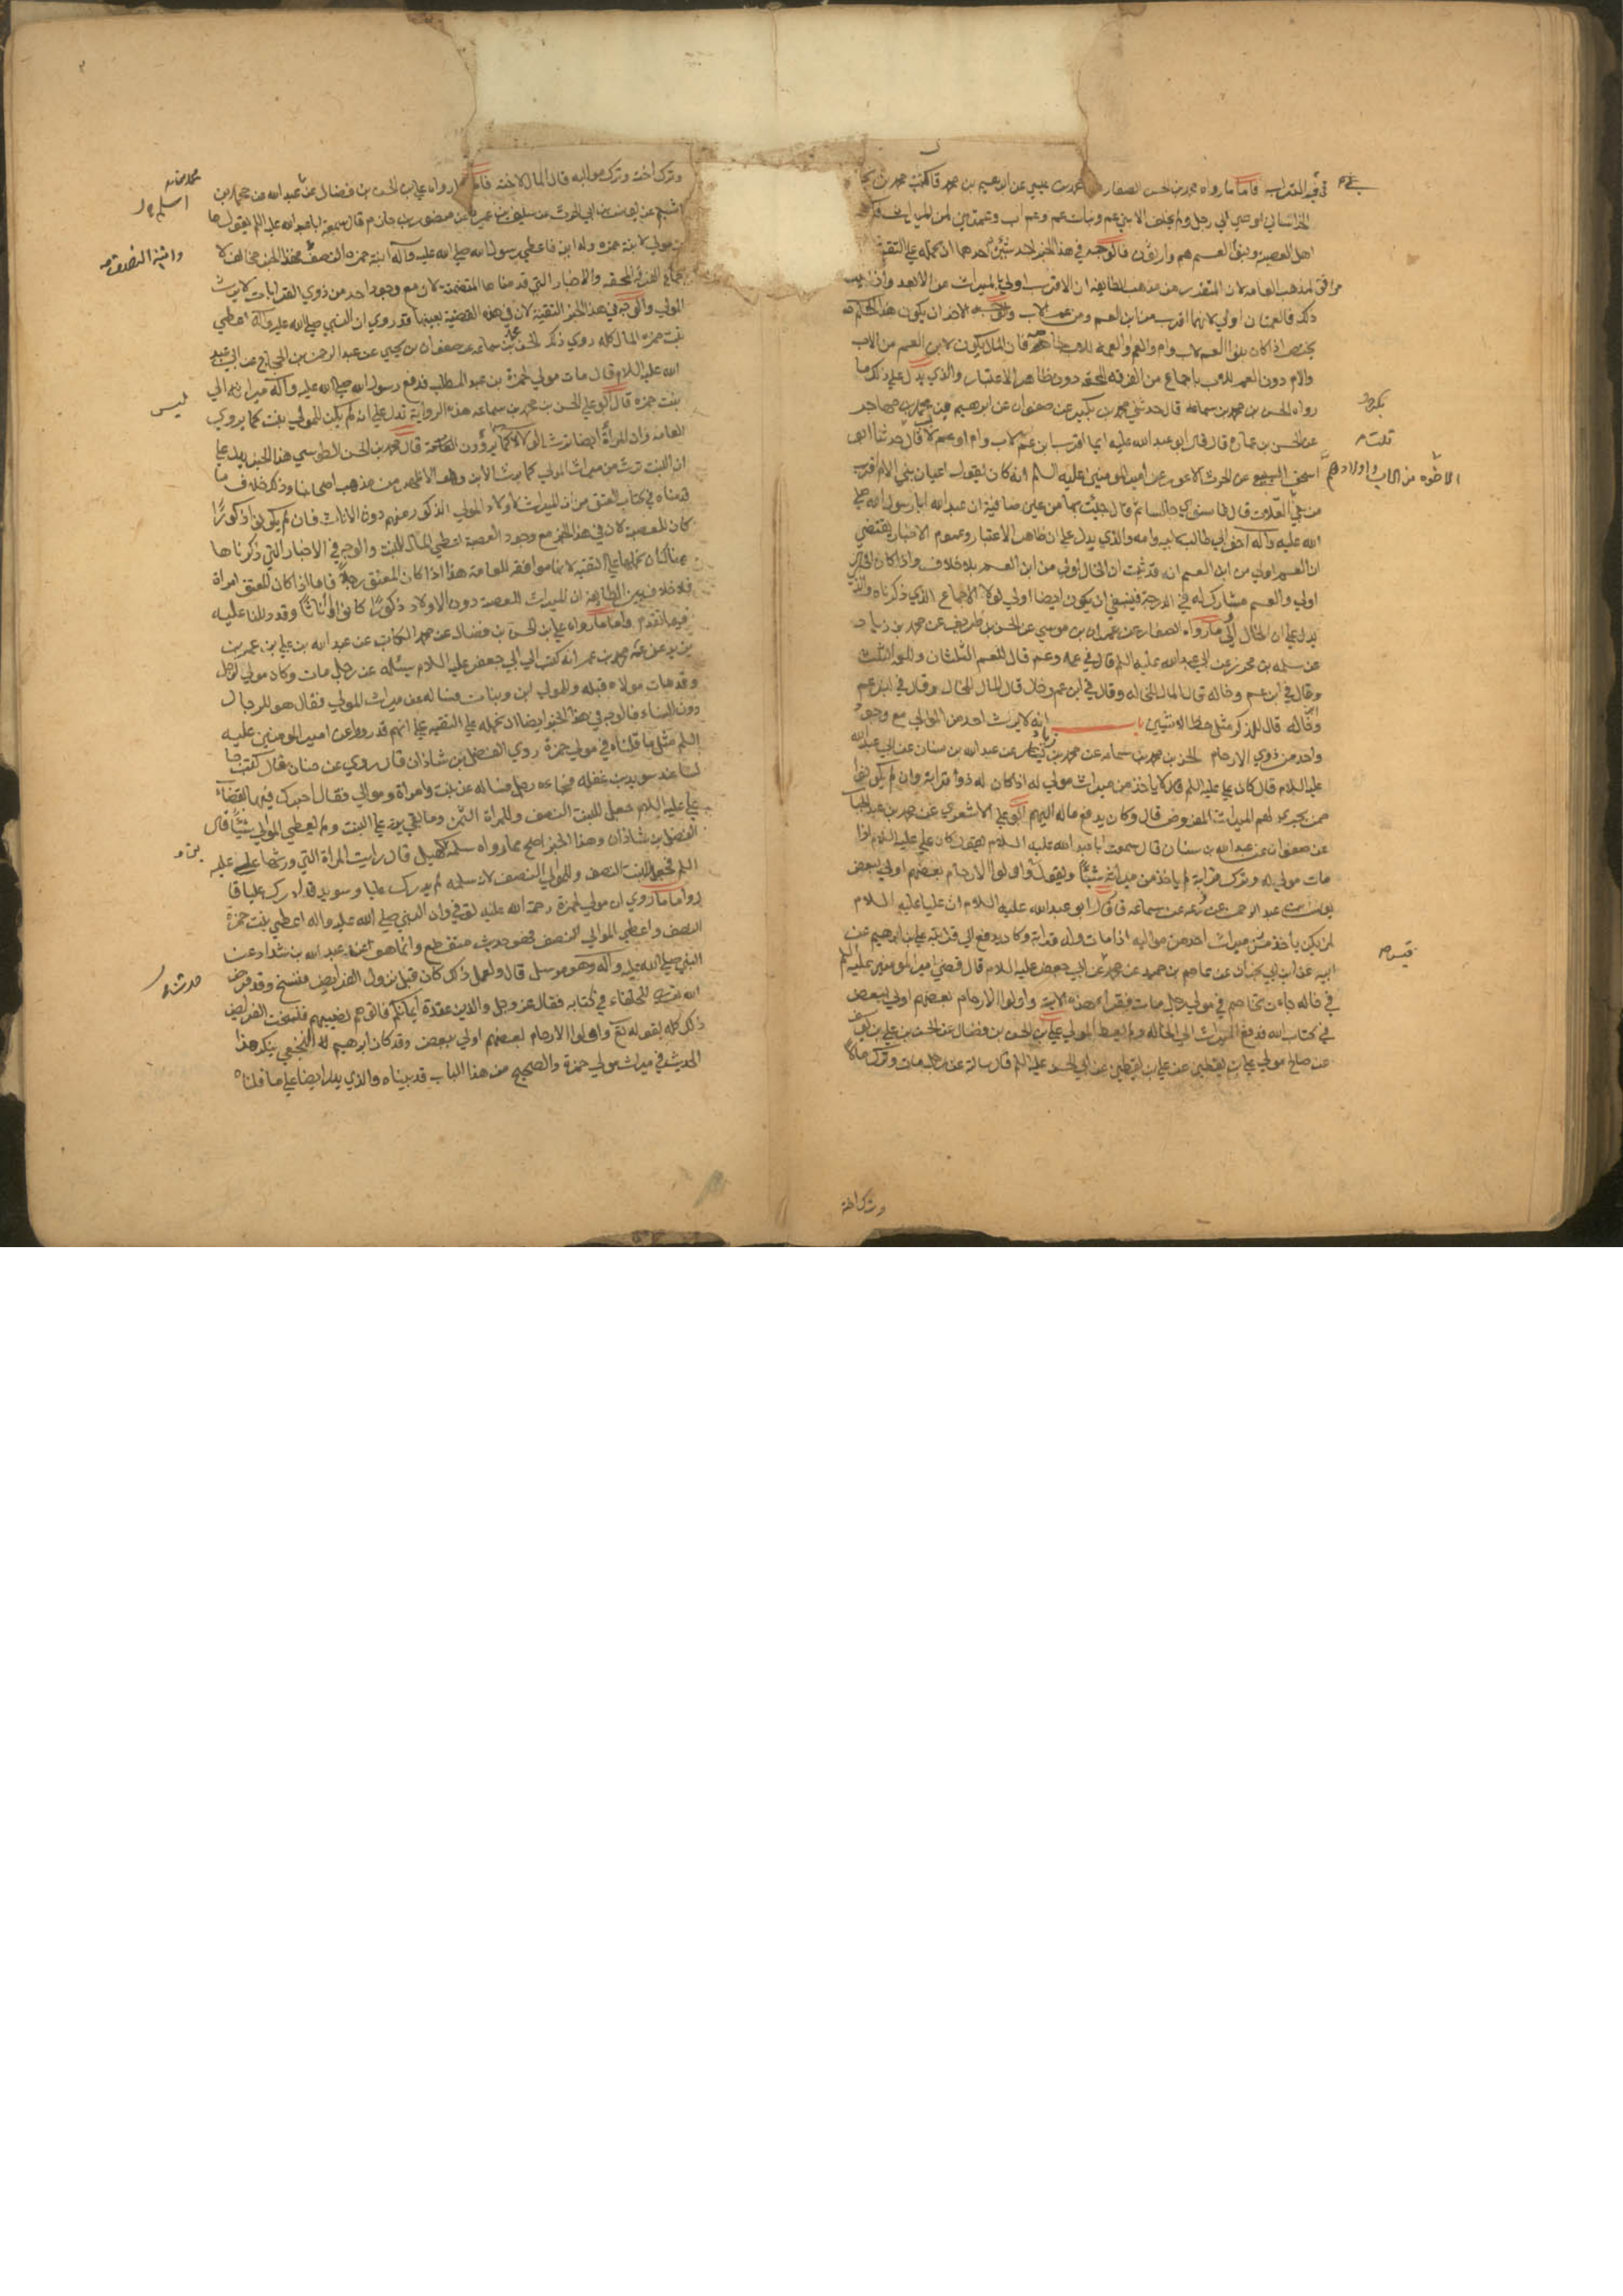 في القرابة فاما ما رواه محمد بن الحسن الصفار محمد بن عيسى عن ابرهيم بن محمد قال كتب محمد بن يحيى
الخراساني اوصى الي رجل ولم يخلف الا بني عم وبنات عم وعم اب وعمتين لمن الميراث فكتب
اهل العصبة وبنو العم هم وارثون فالوجه في هذا الخبر احد شيئين احدهما ان نحمله على التقية
موافق لمذهب العامة لان المتقرر من مذهب الطايفة ان الاقرب اولى بالميراث من الابعد واذا ثبت
ذلك فالعمتان اولى لانهما اقرب من ابن العم ومن عم الاب والوجه الاخر ان يكون هذا الحكم
يختص اذا كان بنوا العم لاب وام والعم والعمة للاب خاصة فان المال يكون لابن العم من الاب
والام دون العم للاب باجماع من الفرقة المحقة دون ظاهر الاعتبار والذي يدل على ذلك ما
رواه الحسن بن محمد بن سماعه قال حدثني محمد بن بكير عن صفوان عن ابرهيم بن محمد بن مهاجر
عن الحسن بن عمارة قال قال ابو عبد الله عليه ايما اقرب ابن عم لاب وام او عم لاب قال حدثنا ابو
اسحق السبيعي عن الحرث الاعور عن امير المومنين عليه السلم انه كان يقول اعيان بني الام اقرب
من بني العلات قال فاستوى جالسا ثم قال جئت بها من عين صافية ان عبد الله ابا رسول الله صلى
الله عليه وآله اخو ابي طالب لابيه وامه والذي يدل على ان ظاهر الاعتبار وعموم الاخبار يقتضي
ان العم اولى من ابن العم انه قد ثبت ان الخال اولى من ابن العم بلا خلاف واذا كان الخال
اولى والعم مشارك له في الدرجة فينبغي ان يكون ايضا اولى لولا الاجماع الذي ذكرناه والذي
يدل على ان الخال اولى ما رواه الصفار عن عمران بن موسى عن الحسن بن ظريف عن محمد بن زياد
عن سلمه بن محرز عن ابي عبد الله عليه السلم قال في عمة وعم قال للعم الثلثان وللعمة الثلث
وقال في ابن عم وخاله قال المال للخاله وقال في ابن عم وخال قال المال للخال وقال في ابن عم
وابن خالة قال للذكر مثل حظ الانثيين باب انه لا يرث احد من الموالي مع وجود
واحد من ذوي الارحام الحسن بن محمد بن سماعه عن محمد بن زياد عن عبد الله بن سنان عن ابي عبد الله
عليه السلام قال كان علي عليه السلم لا ياخذ من ميراث مولى له اذا كان له ذو قرابة وان لم يكونوا
ممن يجري لهم الميراث المفروض قال وكان يدفع ماله اليهم ابو علي الاشعري عن محمد بن عبد الجبار
عن صفوان عن عبد الله بن سنان قال سمعت ابا عبد الله عليه السلام يقول كان علي عليه السلم اذا
مات مولى له وترك قرابة لم ياخذ من ميراثه شيئا ويقول واولوا الارحام بعضهم اولى ببعض
يونس عن عبد الرحمن عن زرعه عن سماعه قال قال ابو عبد الله عليه السلام ان عليا عليه السلام
لم يكن ياخذ من ميراث احد من مواليه اذا مات وله قرابة وكان يدفع الى قرابته علي بن ابرهيم عن
ابيه عن ابن ابي نجران عن عاصم بن حميد عن محمد عن ابي جعفر عليه السلام قال قضى امير المومنين عليه السلم
في خاله جاءت تخاصم في مولى رجل مات فقرا هذه الاية واولوا الارحام بعضهم اولى ببعض
في كتاب الله فدفع الميراث الى الخاله ولم يعط المولى علي بن الحسن بن فضال عن الحسن بن علي بن يوسف
عن صالح مولى علي بن يقطين عن علي بن يقطين عن ابي الحسن عليه السلم قال سالته عن رجل مات وترك مالا
وترك اخته
الاخوة من الاب واولادهم
وترك اخته وترك مواليه قال المال لاخته فاما ما رواه علي بن الحسن بن فضال عن محمد بن عبد الله عن محمد بن
اشيم عن يونس بن ابي الحرث عن سليمان بن عمير عن منصور بن حازم قال سمعت ابا عبد الله عليه السلم يقول مات
مولى لابنة حمزه وله ابنة فاعطى رسول الله صلى الله عليه وآله ابنة حمزه النصف فهذا الخبر مخالف
لاجماع الفرقة المحقه والاخبار التي قدمناها المتضمنة لان مع وجود احد من ذوي القرابات لا يرث
المولى والوجه في هذا الخبر التقية لان في هذه القضية بعينها قد روي ان النبي صلى الله عليه وآله اعطى
بنت حمزه المال كله روى ذلك الحسن بن محمد بن سماعه عن صفوان بن يحيى عن عبد الرحمن بن الحجاج عن ابي عبد
الله عليه السلام قال مات مولى لحمزة بن عبد المطلب فدفع رسول الله صلى الله عليه وآله ميراثه الى
بنت حمزه قال ابو علي الحسن بن محمد بن سماعه هذه الرواية تدل على انه لم يكن للمولى بنت كما يروي
العامة وان المراة ايضا ترث الولاء لا كما يروون العامة قال محمد بن الحسن الطوسي هذا الخبر يدل على
ان البنت ترث من ميراث المولى كما يرث الابن وهو الاظهر من مذهب اصحابنا وذكر خلاف ما
قدمناه في كتاب العتق من ان الميراث لاولاد المولى الذكور منهم دون الاناث فان لم يكونوا ذكورا
كان للعصبة لان في هذا الخبر مع وجود العصبة اعطى المال للبنت والوجه في الاخبار التي ذكرناها
هناك ان نحملها على التقية لانها موافقة للعامة هذا اذا كان المعتق رجلا فاما اذا كان المعتق امراة
فلا خلاف بين الطايفة ان الميراث للعصبة دون الاولاد ذكورا كانوا او اناثا وقد دللنا عليه
فيما تقدم فاما ما رواه علي بن الحسن بن فضال عن محمد الكاتب عن عبد الله بن علي بن عمر بن
يزيد عن عمه محمد بن عمر انه كتب الى ابي جعفر عليه السلام يسئله عن رجل مات وكان مولى لرجل
وقد مات مولاه قبله وللمولى ابن وبنات فساله عن ميراث المولى فقال هو للرجال
دون النساء فالوجه في هذا الخبر ايضا ان نحمله على التقية على انهم قد رووا عن امير المومنين عليه
السلم مثل ما قلناه في مولى حمزة روى الفضل بن شاذان قال روي عن حنان قال كنت جا
لسا عند سويد بن غفله فجاءه رجل فساله عن بنت وامراة وموالي فقال اخبرك فيها بقضاء
علي عليه السلام جعل للبنت النصف وللمراة الثمن وما بقي يرد على البنت ولم يعطي الموالي شيئا قال
الفضل بن شاذان وهذا الخبر اصح مما رواه سلمة بن كهيل قال رايت المراة التي ورثها علي عليه
السلم فجعل للبنت النصف وللموالي النصف لان سلمه لم يدرك عليا وسويد قد ادرك عليا قال
واما ما روي ان مولى لحمزة رحمة الله عليه توفي وان النبي صلى الله عليه واله اعطى بنت حمزة
النصف واعطى الموالي النصف فهو حديث منقطع وانما هو عن عبد الله بن شداد عن
النبي صلى الله عليه وآله وهو مرسل قال ولعل ذلك كان قبل نزول الفرايض فنسخ وقد فرض
الله للحلفاء في كتابه فقال عز وجل والذين عقدت ايمانكم فاتوهم نصيبهم فنسخت الفرايض
ذلك كله بقوله تع واولوا الارحام بعضهم اولى ببعض وقد كان ابرهيم النخعي ينكر هذا
الحديث في ميراث مولى حمزة والصحيح من هذا الباب قد بيناه والذي يدل ايضا على ما قلناه